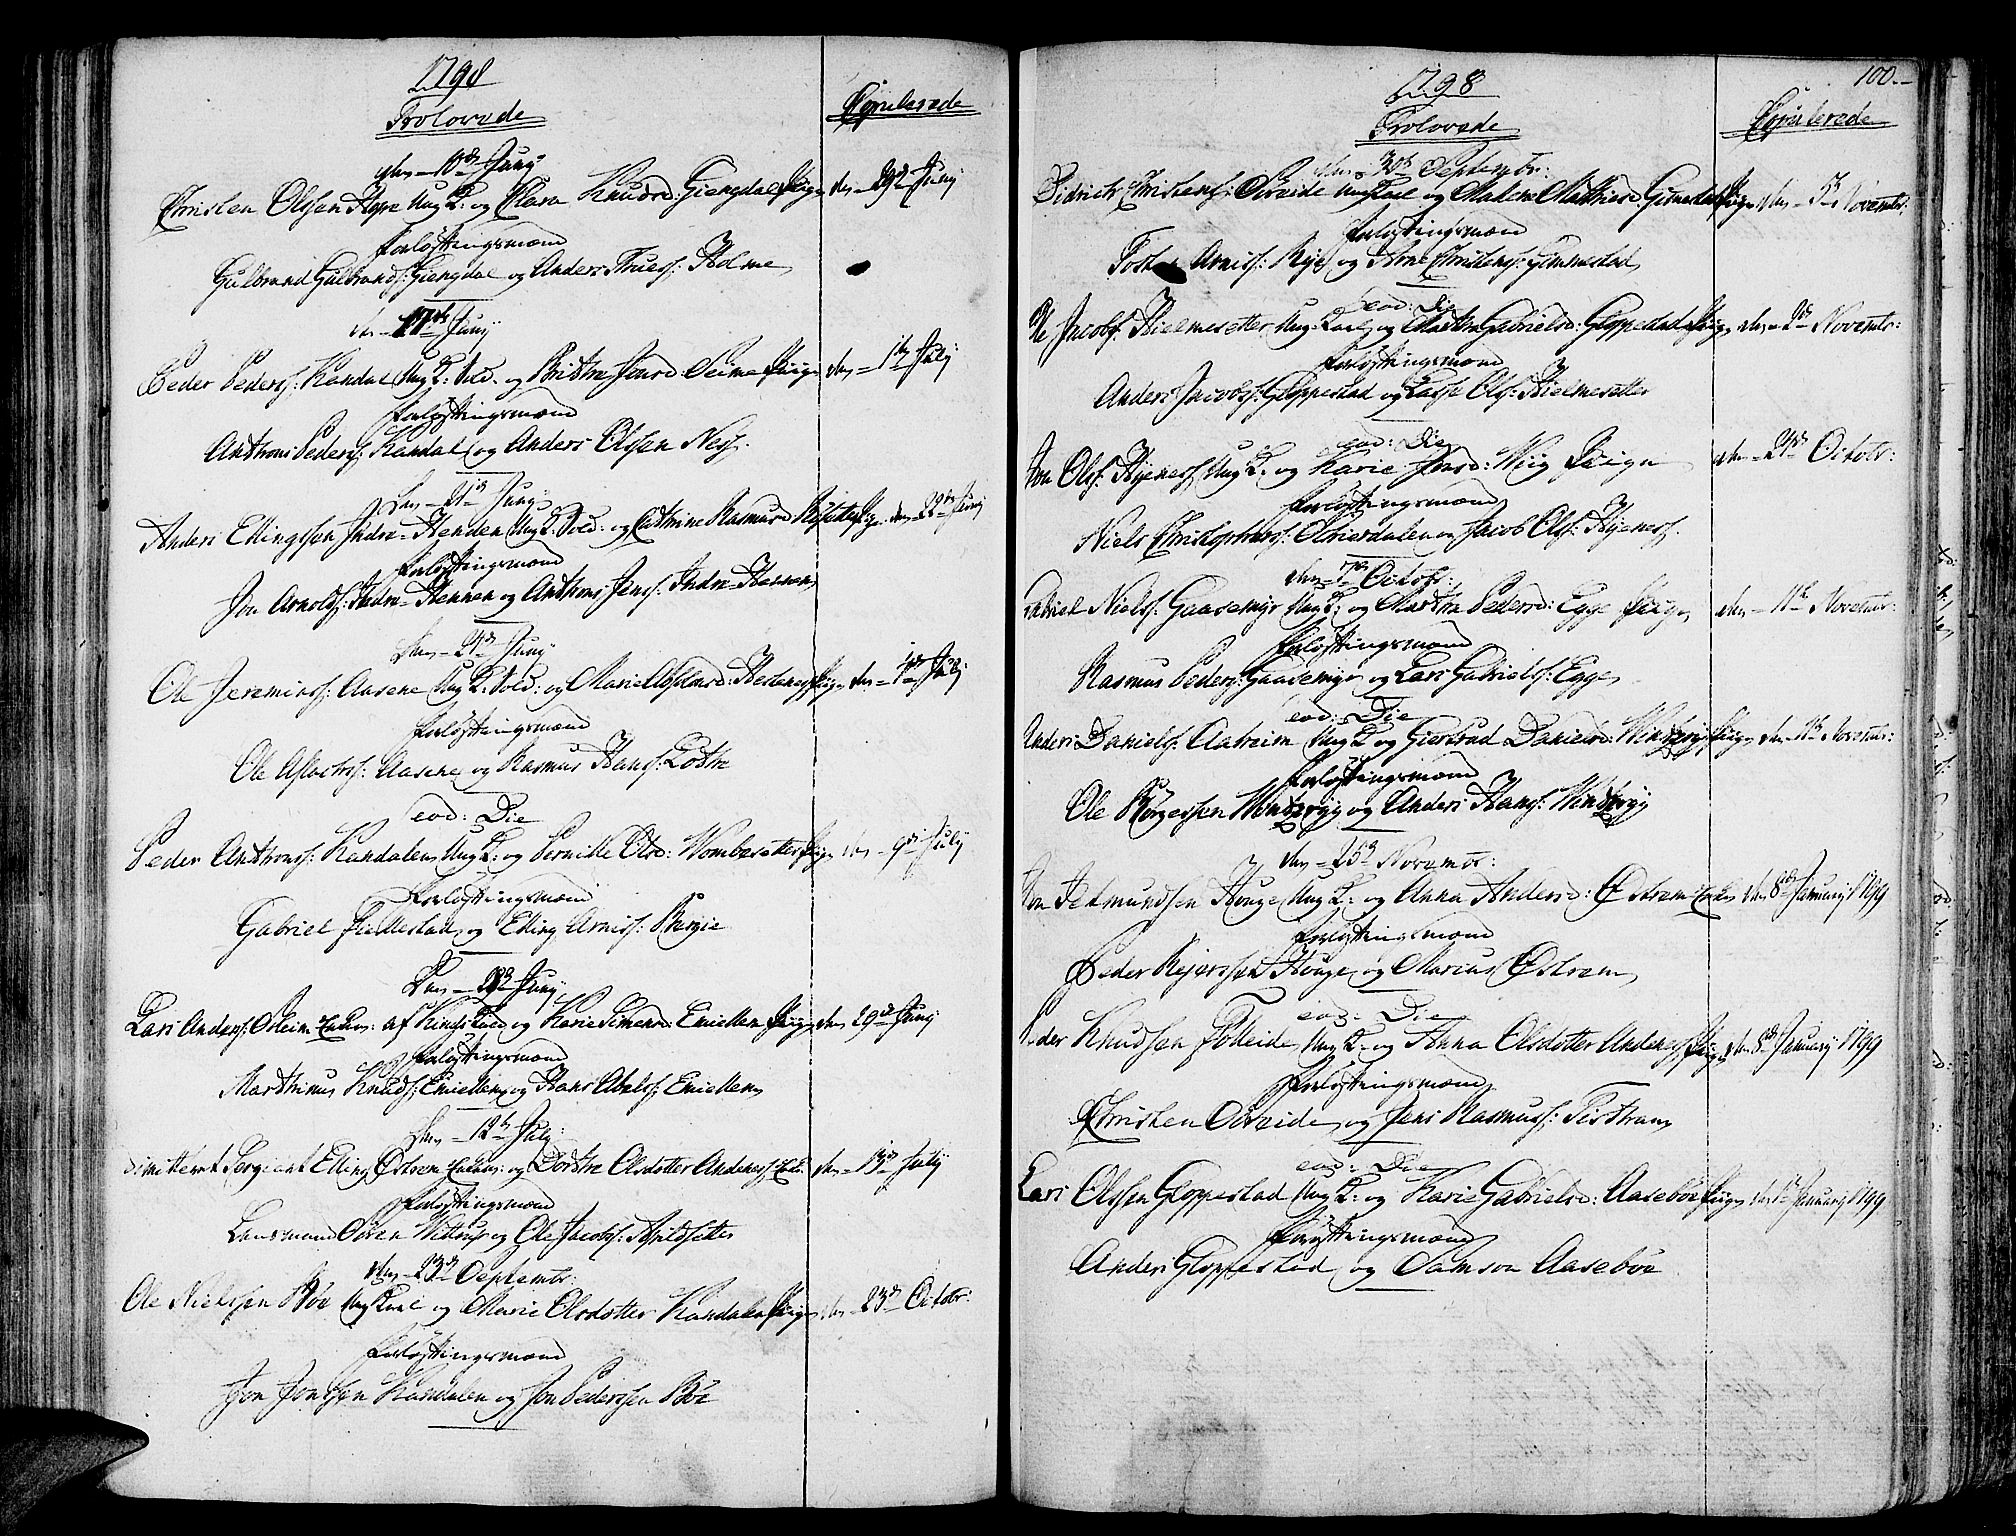 1798
Trolovede
Copulerede
den 10de Junÿ
Christen Olssen Ayre Ung K: og Clara Knudsd: Giengdal Pige den 29de Junÿ
Forløftingsmænd
Gulbrand Gulbrands: Giengdal og Anders Truess: Holme
den 17de Junÿ
Peder Peders: Kandal Ung K: Sold. og Brithe Jonsd: Seime Pige den 1ste Julÿ
Forløftingsmænd
Anthoni Peders: Kandal og Anders Olssen Ness.
Den 21de Junÿ
Anders Ellingssen Indre Hennen Ung K: Sold: og Cathrine Rasmusd Pige den 22de Junÿ
Forløftingsmænd
Jon Arnolds: Indre Hennen og Anthoni Jenss: Indre Hennen
Den 24de Junÿ
Ole Jeremiass: Aasene Ung K: Sold: og Marie Pige den 1ste Julÿ
Forløftingsmænd
Ole Aslachs: Aasene og Rasmus Hans: Lothe
eod: Die
Peder Anthonss: Kandalen Ung K: og Pernille Olsd: Wombesetter Pige den 9de Julÿ
Forløftingsmænd
Gabriel Fiellestad og Elling Arniss: Bergie
Den 28de Junÿ
Lars Anders: Osleim og Karie Simensd: Emiellem Pige den 29de Junÿ
Forløftingsmænd
Marthinus Knuds: Emiellem og Hans Abels: Emiellem
Den 12te Julÿ
Dimitteret Sergiant Elling Østrem og Dorthe Olsdotter Andenes den 13de Julÿ
Forløftingsmænd
Lensmand Søren Wittrup og Ole Jacobs: Apildsetter
den 23de Septembr:
Ole Nielssen Bøe Ung Karl og Marie Olsdotter Kandalen Pige den 23de Octobr:
Forløftingsmænd
Jon Jonssen Kandalen og Jon Pederssen Bøe
100
1798
Trolovede
Copulerede
den 30te Septembr:
Didrich Christens: Ung Karl og Malene Mathisd: Gimestad Pige den 5te Novembr:
Forløftingsmænd
Arniss: Rye og Arne Christens: Gimmestad
eod: Die
Ole Jacobs: Hielmesetter Ung Karl og Marthe Gabrielsd: Gloppestad Pige den 2de Novembr:
Forløftingsmænd
Anders Jacobs: Gloppestad og Lasse Ols: Hielmesetter
eod: Die
Jon Ols: Hyeness Ung K: og Karie Jonsd: Wiig Pige den 24de Octobr:
Forløftingsmænd
Niels Christophers: og Jacob Ols: Hyeness.
den 7de Octobr:
Gabriel Niels: Gaasemyr Ung K: og Marthe Pedersd: Egge Pige den 11te Novembr:
Forløftingsmænd
Rasmus Peders: Gaasemyr og Lars Gabriels: Egge
eod: Die
Anders Daniels: Aaheim Ung K og Giertrud Danielsd: Pige den 11te Novembr:
Forløftingsmænd
Ole Børgessen og Anders Hans:
den 25de Novembr:
Jon Tedmundsen Houge Ung K: og Anna Andersd: Østrem Enke den 8de Januarÿ 1799
Forløftingsmænd
Peder Rejerssen Houge og Marius Østrem
eod: Die
Peder Knudsen Følleide Ung K: og Anna Olsdotter Andenes Pige den 8de Januarÿ 1799
Forløftingsmænd
Christen Osreide og Jens Rasmuss: Tistram
eod: Die
Lars Olssen Gloppestad Ung K: og Karie Gabrielsd: Aasebøe Pige den 1ste Januarÿ 1799
Forløftingsmænd
Anders Gloppestad og Samson Aasebøe